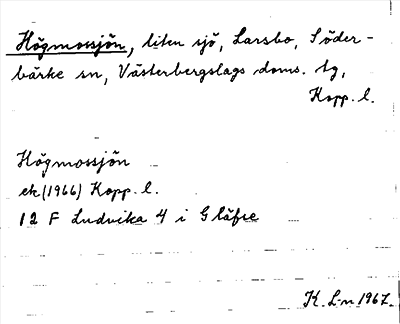 Högmossjön, liten sjö, Larsbo, Söder-
bärke sn, Västerbergslags doms. tg,
Kopp. l.
Högmossjön
ek (1966) Kopp. l.
12 F Ludvika 4 i Gläfse
K. L-n 1967.